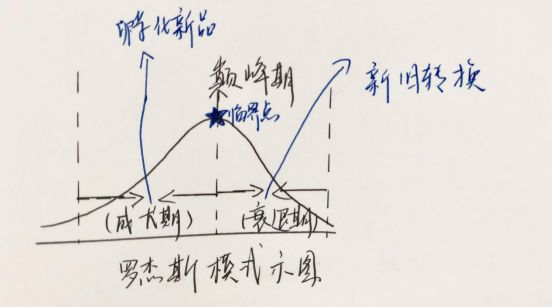 孵化新品
巅峰期
新旧转换
临界点
(成长期)
(衰退期)
罗杰斯模式示图